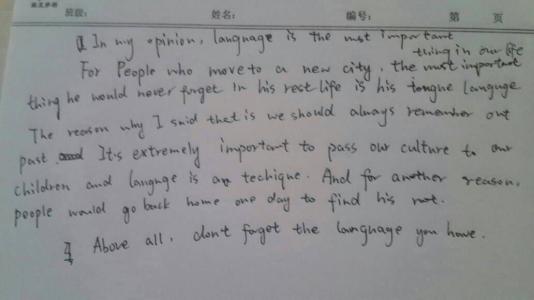 英文多格
班级: 姓名: 编号: 第 页
In my opinion, language is the most important
thing in our life
For People who move to a new city, the most important
thing he would never forget in his rest life is his tongue languge
The reason why I said that is we should always remember out
past. It's extremely important to pass our culture to our
children and languge is an techique. And for another reason,
people would go back home one day to find his root.
Above all, don't foget the language you have.